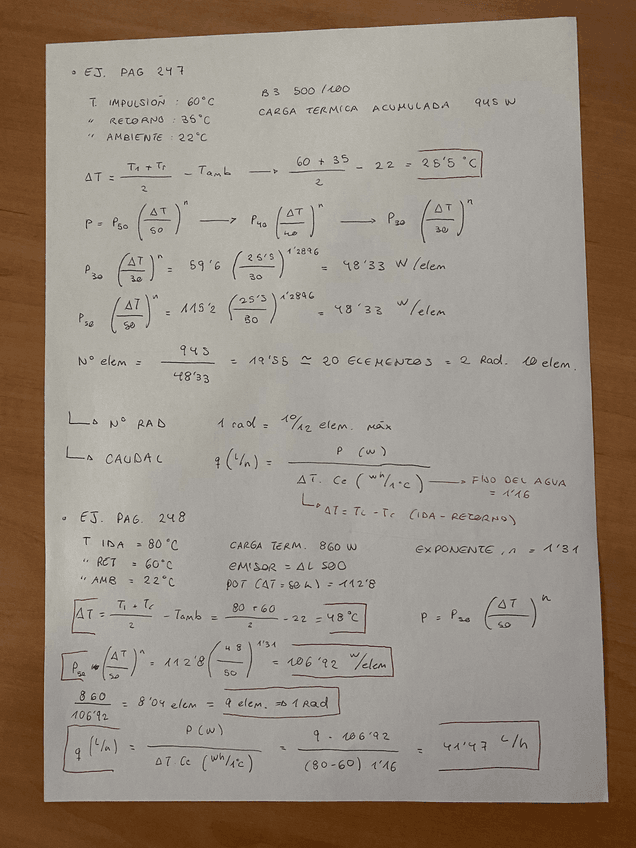 • EJ. PAG 247
T. IMPULSIÓN : 60°C
B3 500/100
" RETORNO : 35°C
CARGA TERMICA ACUMULADA 945 W
" AMBIENTE : 22°C
ΔT = (T1 + Tr)/2 - Tamb → (60 + 35)/2 - 22 = 25'5 °C
P = P50 (ΔT/50)^n → P40 (ΔT/40)^n → P30 (ΔT/30)^n
P30 (ΔT/30)^n = 59'6 (25'5/30)^1'2896 = 48'33 W/elem
P50 (ΔT/50)^n = 115'2 (25'5/50)^1'2896 = 48'33 W/elem
Nº elem = 945/48'33 = 19'55 ≃ 20 ELEMENTOS = 2 Rad. 10 elem.
↳ Nº RAD 1 rad = 10/12 elem. máx
↳ CAUDAL q (L/h) = P (W) / ΔT. Ce (Wh/L°C) → FIJO DEL AGUA = 1'16
↳ ΔT = Ti - Tr (IDA - RETORNO)
• EJ. PAG. 248
T IDA = 80°C CARGA TERM. 860 W EXPONENTE, n = 1'31
" RET = 60°C EMISOR = AL 500
" AMB = 22°C POT (ΔT = 50 k) = 112'8
ΔT = (Ti + Tr)/2 - Tamb = (80 + 60)/2 - 22 = 48°C P = P50 (ΔT/50)^n
P50 (ΔT/50)^n = 112'8 (48/50)^1'31 = 106'92 W/elem
860/106'92 = 8'04 elem = 9 elem. ⇒ 1 Rad
q (L/h) = P (W) / ΔT. Ce (Wh/L°C) = 9 · 106'92 / (80-60) 1'16 = 41'47 L/h